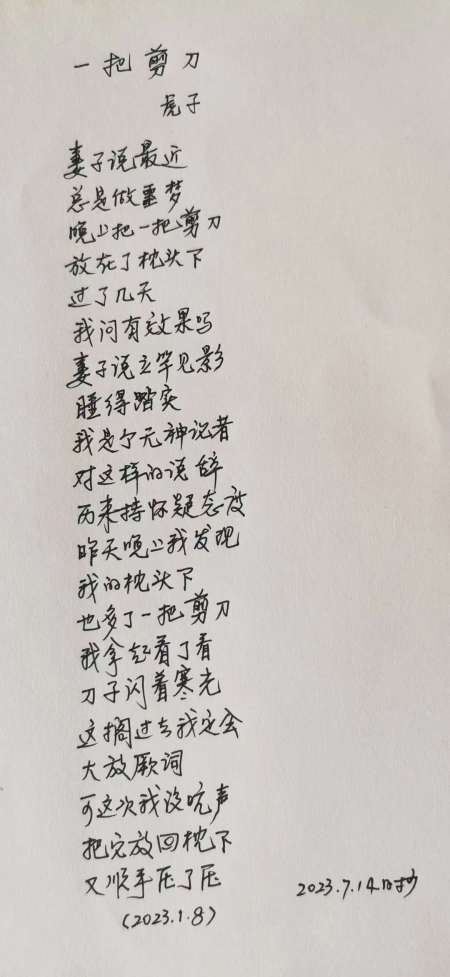 一把剪刀
虎子
妻子说最近
总是做噩梦
晚上把一把剪刀
放在了枕头下
过了几天
我问有效果吗
妻子说立竿见影
睡得踏实
我是个无神论者
对这样的说辞
历来持怀疑态度
昨天晚上我发现
我的枕头下
也多了一把剪刀
我拿起看了看
刀子闪着寒光
这搁过去我定会
大放厥词
可这次我没吭声
把它放回枕下
又顺手压了压
2023.7.14日抄
(2023.1.8)